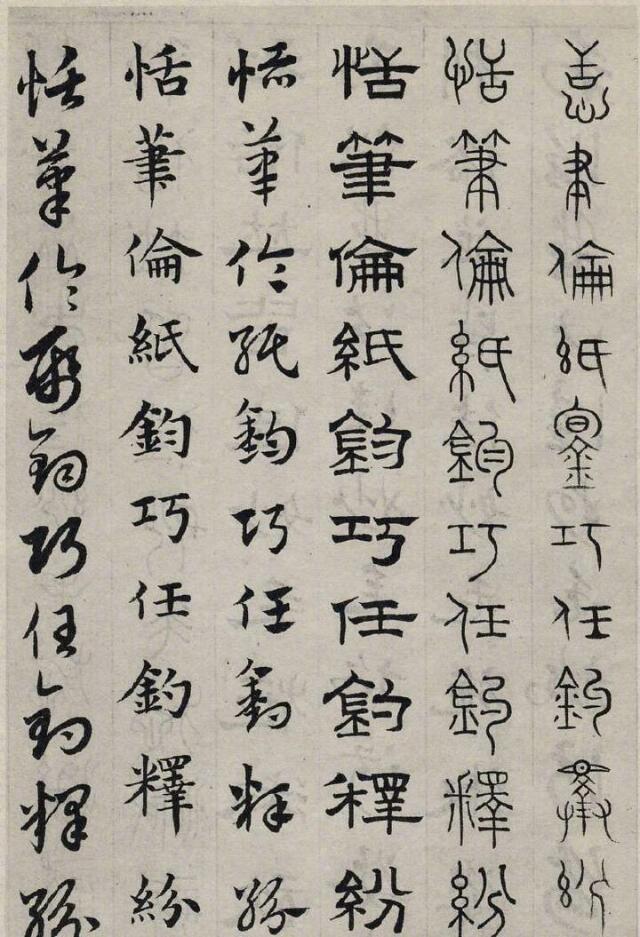 恬筆倫紙鈞巧任釣釋紛
恬筆倫紙鈞巧任釣釋紛
恬筆倫紙鈞巧任釣釋紛
恬筆倫紙鈞巧任釣釋紛
恬筆倫紙鈞巧任釣釋紛
恬筆倫紙鈞巧任釣釋紛